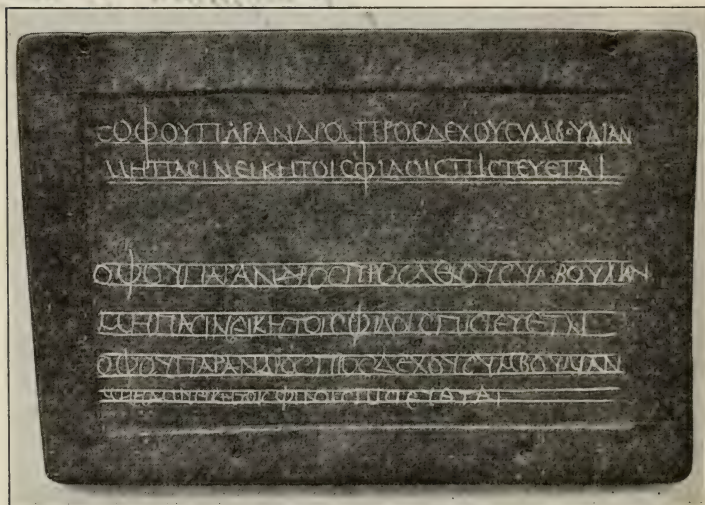 ϹΟΦΟΥΠΑΡΑΝΔΡΟϹΠΡΟϹΔΕΧΟΥϹΥΜΒΟΥΛΙΑΝ
ΜΗΠΑϹΙΝΕΙΚΗΤΟΙϹΦΙΛΟΙϹΠΙϹΤΕΥΕΤΑΙ
ΟΦΟΥΠΑΡΑΝΔΡΟϹΠΡΟϹΔΘΟΥϹΥΜΒΟΥΛΙΑΝ
ΜΗΠΑϹΙΝΕΙΚΗΤΟΙϹΦΙΛΟΙϹΠΙϹΤΕΥΕΤΑΙ
ΟΦΟΥΠΑΡΑΝΔΡΟϹΠΡΟϹΔΕΧΟΥϹΥΜΒΟΥΛΙΑΝ